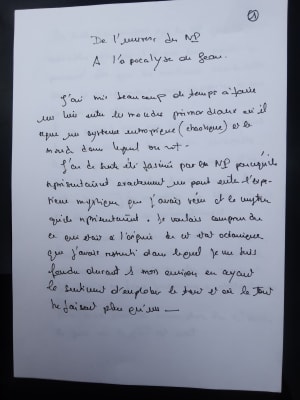 1
De l'univers du NP
A l'apocalypse de Jean.
J'ai mis beaucoup de temps à faire
un lien entre le monde primordiaux où il
que un système entropique (chaotique) et le
monde dans lequel on vit.
J'ai de suite été fasciné par les NP parce qu'ils
représentaient exactement un pont entre l'expé-
rience mystique que j'avais vécu et le mythe
qu'ils représentaient. Je voulais comprendre
ce qui était à l'origine de cet état océanique
que j'avais ressenti dans lequel je me suis
fondu durant 1 mois environ en ayant
le sentiment d'englober le tout et où le Tout
ne faisait plus qu'un